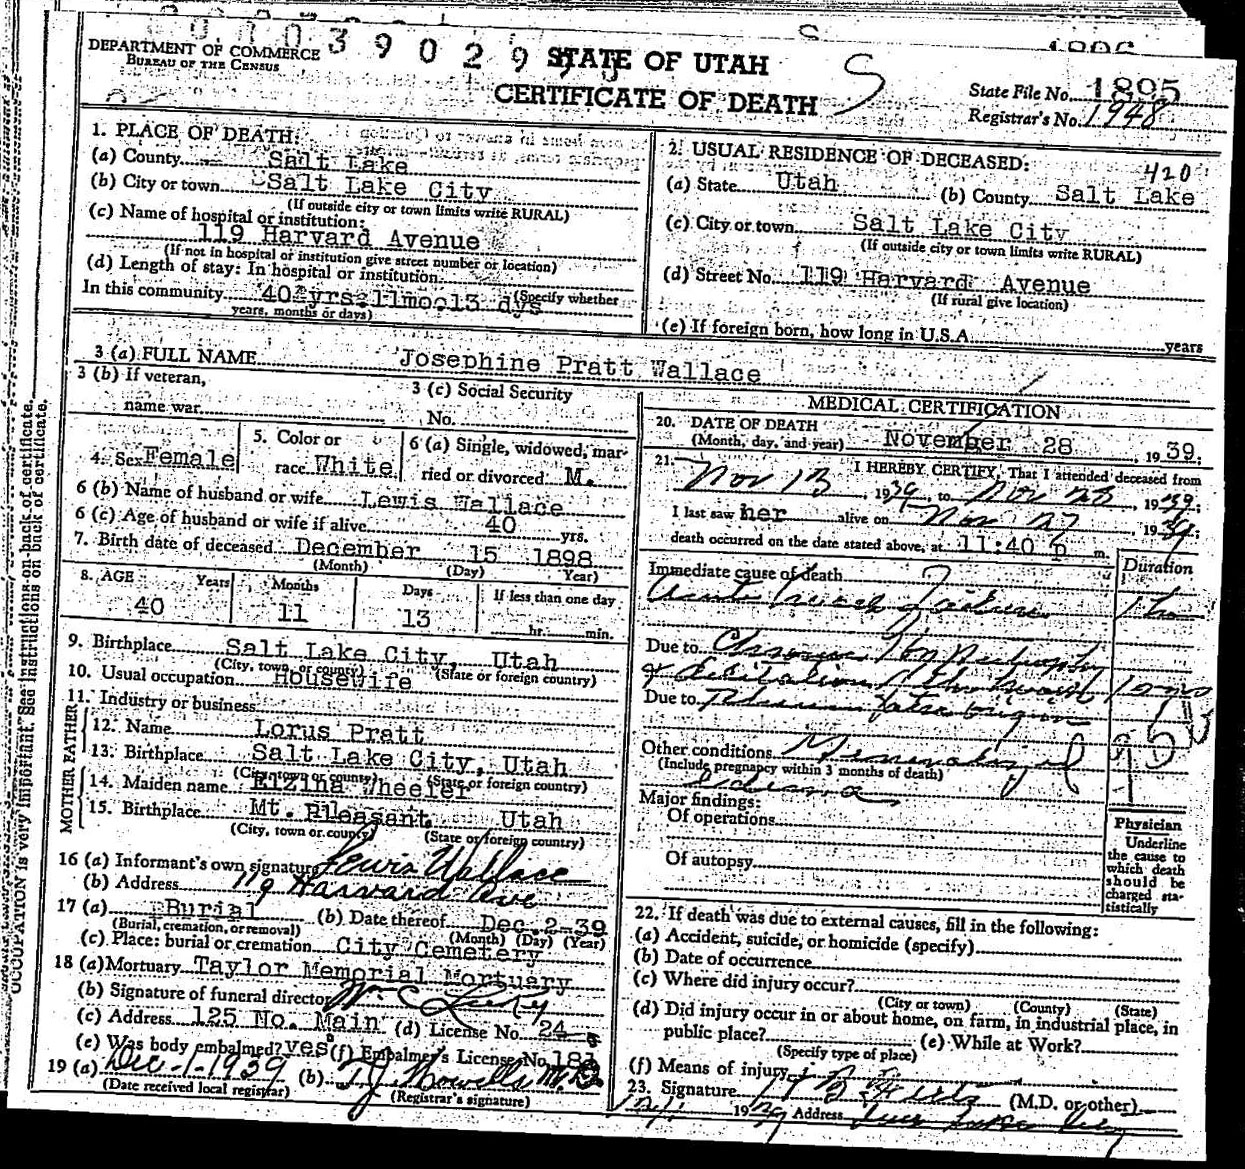 39029
S
DEPARTMENT OF COMMERCE
BUREAU OF THE CENSUS
STATE OF UTAH
CERTIFICATE OF DEATH
State File No. 1895
Registrar's No. 1948
1. PLACE OF DEATH:
(a) County Salt Lake
(b) City or town Salt Lake City
(If outside city or town limits write RURAL)
(c) Name of hospital or institution:
119 Harvard Avenue
(If not in hospital or institution give street number or location)
(d) Length of stay: In hospital or institution
(Specify whether
In this community 40 yrs. 11mo. 13 dys
years, months or days)
2. USUAL RESIDENCE OF DECEASED:
420
(a) State Utah (b) County Salt Lake
(c) City or town Salt Lake City
(If outside city or town limits write RURAL)
(d) Street No. 119 Harvard Avenue
(If rural give location)
(e) If foreign born, how long in U.S.A. years
3 (a) FULL NAME Josephine Pratt Wallace
3 (b) If veteran,
name war
3 (c) Social Security
No.
4. Sex Female
5. Color or
race White
6 (a) Single, widowed, mar-
ried or divorced M.
6 (b) Name of husband or wife Lewis Wallace
6 (c) Age of husband or wife if alive 40 yrs.
7. Birth date of deceased December 15 1898
(Month) (Day) Year)
8. AGE Years Months Days If less than one day
40 11 13 hr. min.
9. Birthplace Salt Lake City, Utah
(City, town, or county) (State or foreign country)
10. Usual occupation Housewife
11. Industry or business
FATHER
12. Name Lorus Pratt
13. Birthplace Salt Lake City, Utah
(City, town or county) (State or foreign country)
MOTHER
14. Maiden name Elzina Wheeler
15. Birthplace Mt. Pleasant Utah
(City, town or county) (State or foreign country)
16 (a) Informant's own signature Lewis Wallace
(b) Address 119 Harvard Ave
17 (a) Burial (b) Date thereof Dec. 2-39
(Burial, cremation, or removal) (Month) (Day) (Year)
(c) Place: burial or cremation City Cemetery
18 (a) Mortuary Taylor Memorial Mortuary
(b) Signature of funeral director Wm C
(c) Address 125 No. Main (d) License No. 24
(e) Was body embalmed? yes (f) Embalmer's License No. 181
19 (a) Dec-1-1939 (b) T.J. Howells M.D.
(Date received local registrar) (Registrar's signature)
MEDICAL CERTIFICATION
20. DATE OF DEATH
(Month, day, and year) November 28 1939.
21. I HEREBY CERTIFY, That I attended deceased from
Nov 13, 1939, to Nov 28 1939;
I last saw her alive on Nov 27 1939;
death occurred on the date stated above, at 11:40 p m.
Duration
Immediate cause of death
Acute
Due to Chronic
Due to
Other conditions
(Include pregnancy within 3 months of death)
edema
Major findings:
Of operations
Of autopsy
Physician
Underline
the cause to
which death
should be
charged sta-
tistically
22. If death was due to external causes, fill in the following:
(a) Accident, suicide, or homicide (specify)
(b) Date of occurrence
(c) Where did injury occur?
(City or town) (County) (State)
(d) Did injury occur in or about home, on farm, in industrial place, in
public place? (e) While at Work?
(Specify type of place)
(f) Means of injury
23. Signature (M.D. or other)
12/1 1939 Address Salt Lake City
OCCUPATION is very important. See instructions on back of certificate.